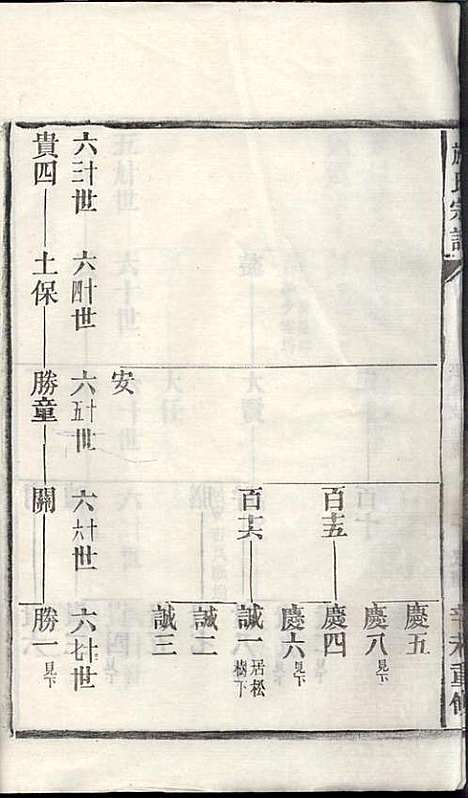 氏宗譜
辛未重修
慶五
慶八見下
百十五
慶四
慶六見下
百十六
誠一居松樹下
誠二
誠三
安
六十三世
六十四世
六十五世
六十六世
六十七世
貴四
土保
勝童
關
勝一見下